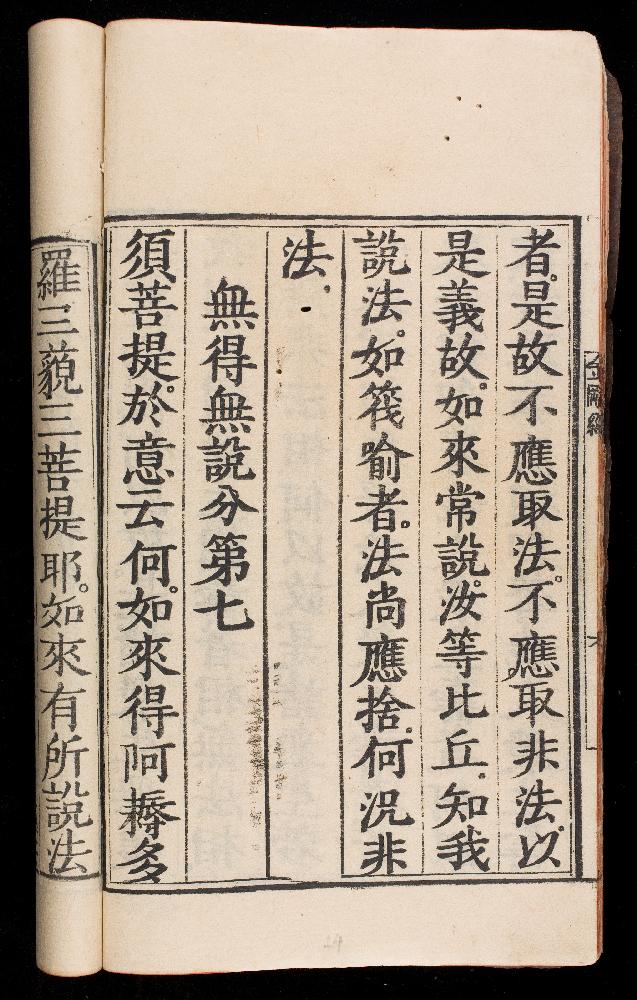 者。是故不應取法。不應取非法。以
是義故。如來常說。汝等比丘。知我
說法。如筏喻者。法尚應捨。何況非
法。
無得無說分第七
須菩提。於意云何。如來得阿耨多
羅三藐三菩提耶。如來有所說法
金剛經